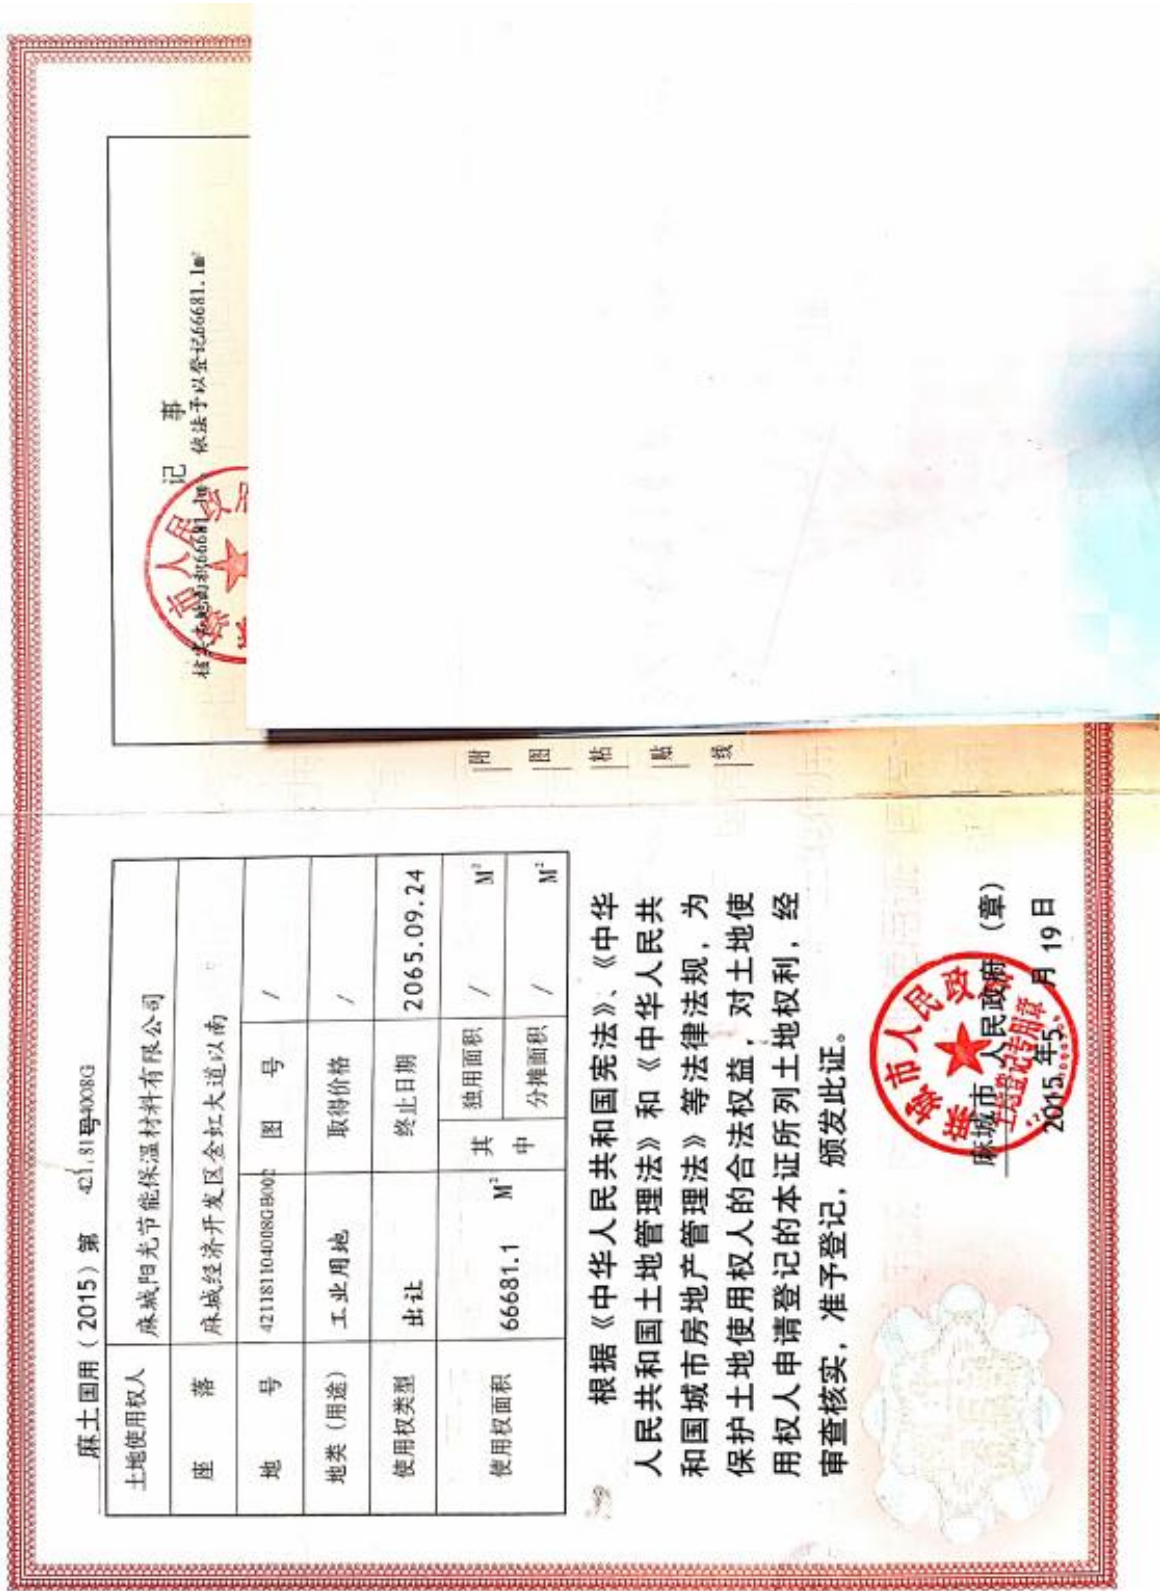 麻土国用（2015）第 421181号4008G
土地使用权人 麻城阳光节能保温材料有限公司
座 落 麻城经济开发区金虹大道以南
地 号 421181104008GB002 图 号 /
地类（用途） 工业用地 取得价格 /
使用权类型 出让 终止日期 2065.09.24
使用权面积 66681.1 M² 其中 独用面积 / M²
分摊面积 / M²
根据《中华人民共和国宪法》、《中华
人民共和国土地管理法》和《中华人民共
和国城市房地产管理法》等法律法规，为
保护土地使用权人的合法权益，对土地使
用权人申请登记的本证所列土地权利，经
审查核实，准予登记，颁发此证。
麻城市 人民政府（章）
2015 年5 月 19 日
麻城市人民政府
土地登记专用章
附图粘贴线
记 事
面积66681.1m² 依法予以登记66681.1m²
城市人民政